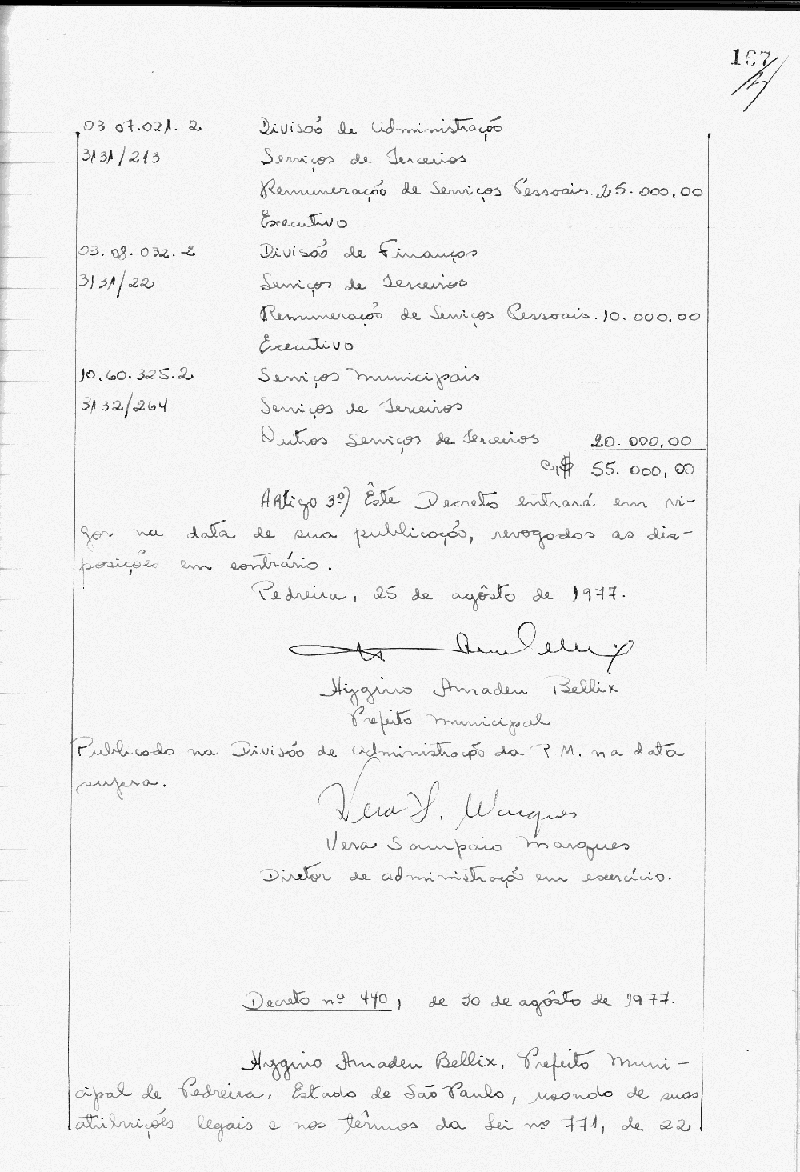 167
03 07.021.2 Divisão de Administração
3131/213 Serviços de Terceiros
Remuneração de Serviços Pessoais. 25.000,00
Executivo
03.08.032.2 Divisão de Finanças
3131/22 Serviços de Terceiros
Remuneração de Serviços Pessoais. 10.000,00
Executivo
10.60.325.2 Serviços Municipais
3132/264 Serviços de Terceiros
Outros Serviços de Terceiros 20.000,00
Cr$ 55.000,00
Artigo 3º) Êste Decreto entrará em vi-
gor na data de sua publicação, revogados as dis-
posições em contrário.
Pedreira, 25 de agôsto de 1977.
Hyggino Amadeu Bellix
Prefeito Municipal
Publicado na Divisão de Administração da P M. na data
supra.
Vera S. Marques
Vera Sampaio Marques
Diretór de Administração em exercício.
Decreto nº 440, de 30 de agôsto de 1977.
Hyggino Amadeu Bellix, Prefeito Muni-
cipal de Pedreira, Estado de São Paulo, usando de suas
atribuições legais e nos têrmos da Lei nº 771, de 22